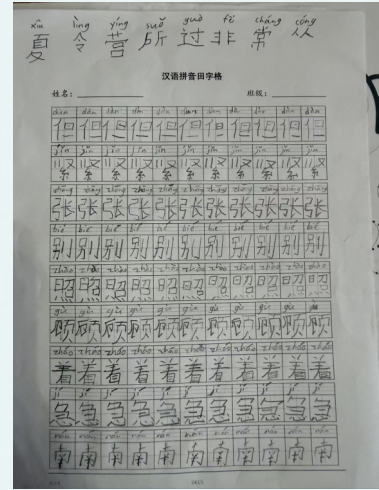 xià lìng yíng suǒ guò fēi cháng cóng
夏 令 营 所 过 非 常 从
汉语拼音田字格
姓名： 班级：
dàn dàn dàn dàn dàn dàn dàn dàn dàn dàn dàn
但 但 但 但 但 但 但 但 但 但 但
jǐn jǐn jǐn jǐn jǐn jǐn jǐn jǐn jǐn jǐn jǐn
紧 紧 紧 紧 紧 紧 紧 紧 紧 紧 紧
zhāng zhāng zhāng zhāng zhāng zhāng zhāng zhāng zhāng zhāng zhāng
张 张 张 张 张 张 张 张 张 张 张
bié bié bié bié bié bié bié bié bié bié bié
别 别 别 别 别 别 别 别 别 别 别
zhào zhào zhào zhào zhào zhào zhào zhào zhào zhào zhào
照 照 照 照 照 照 照 照 照 照 照
gù gù gù gù gù gù gù gù gù gù gù
顾 顾 顾 顾 顾 顾 顾 顾 顾 顾 顾
zháo zháo zháo zháo zháo zháo zháo zháo zháo zháo zháo
着 着 着 着 着 着 着 着 着 着 着
jí jí jí jí jí jí jí jí jí jí jí
急 急 急 急 急 急 急 急 急 急 急
nán nán nán nán nán nán nán nán nán nán nán
南 南 南 南 南 南 南 南 南 南 南